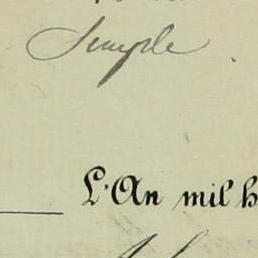 Simple
L'An mil h